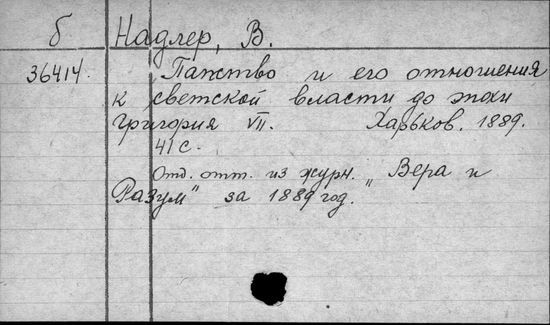 б Надлер, В.
36414. Папство и его отношения
к светской власти до эпохи
Григория VII. Харьков. 1889.
41 с.
Отд. отт. из журн. „Вера и
Разум" за 1889 год.